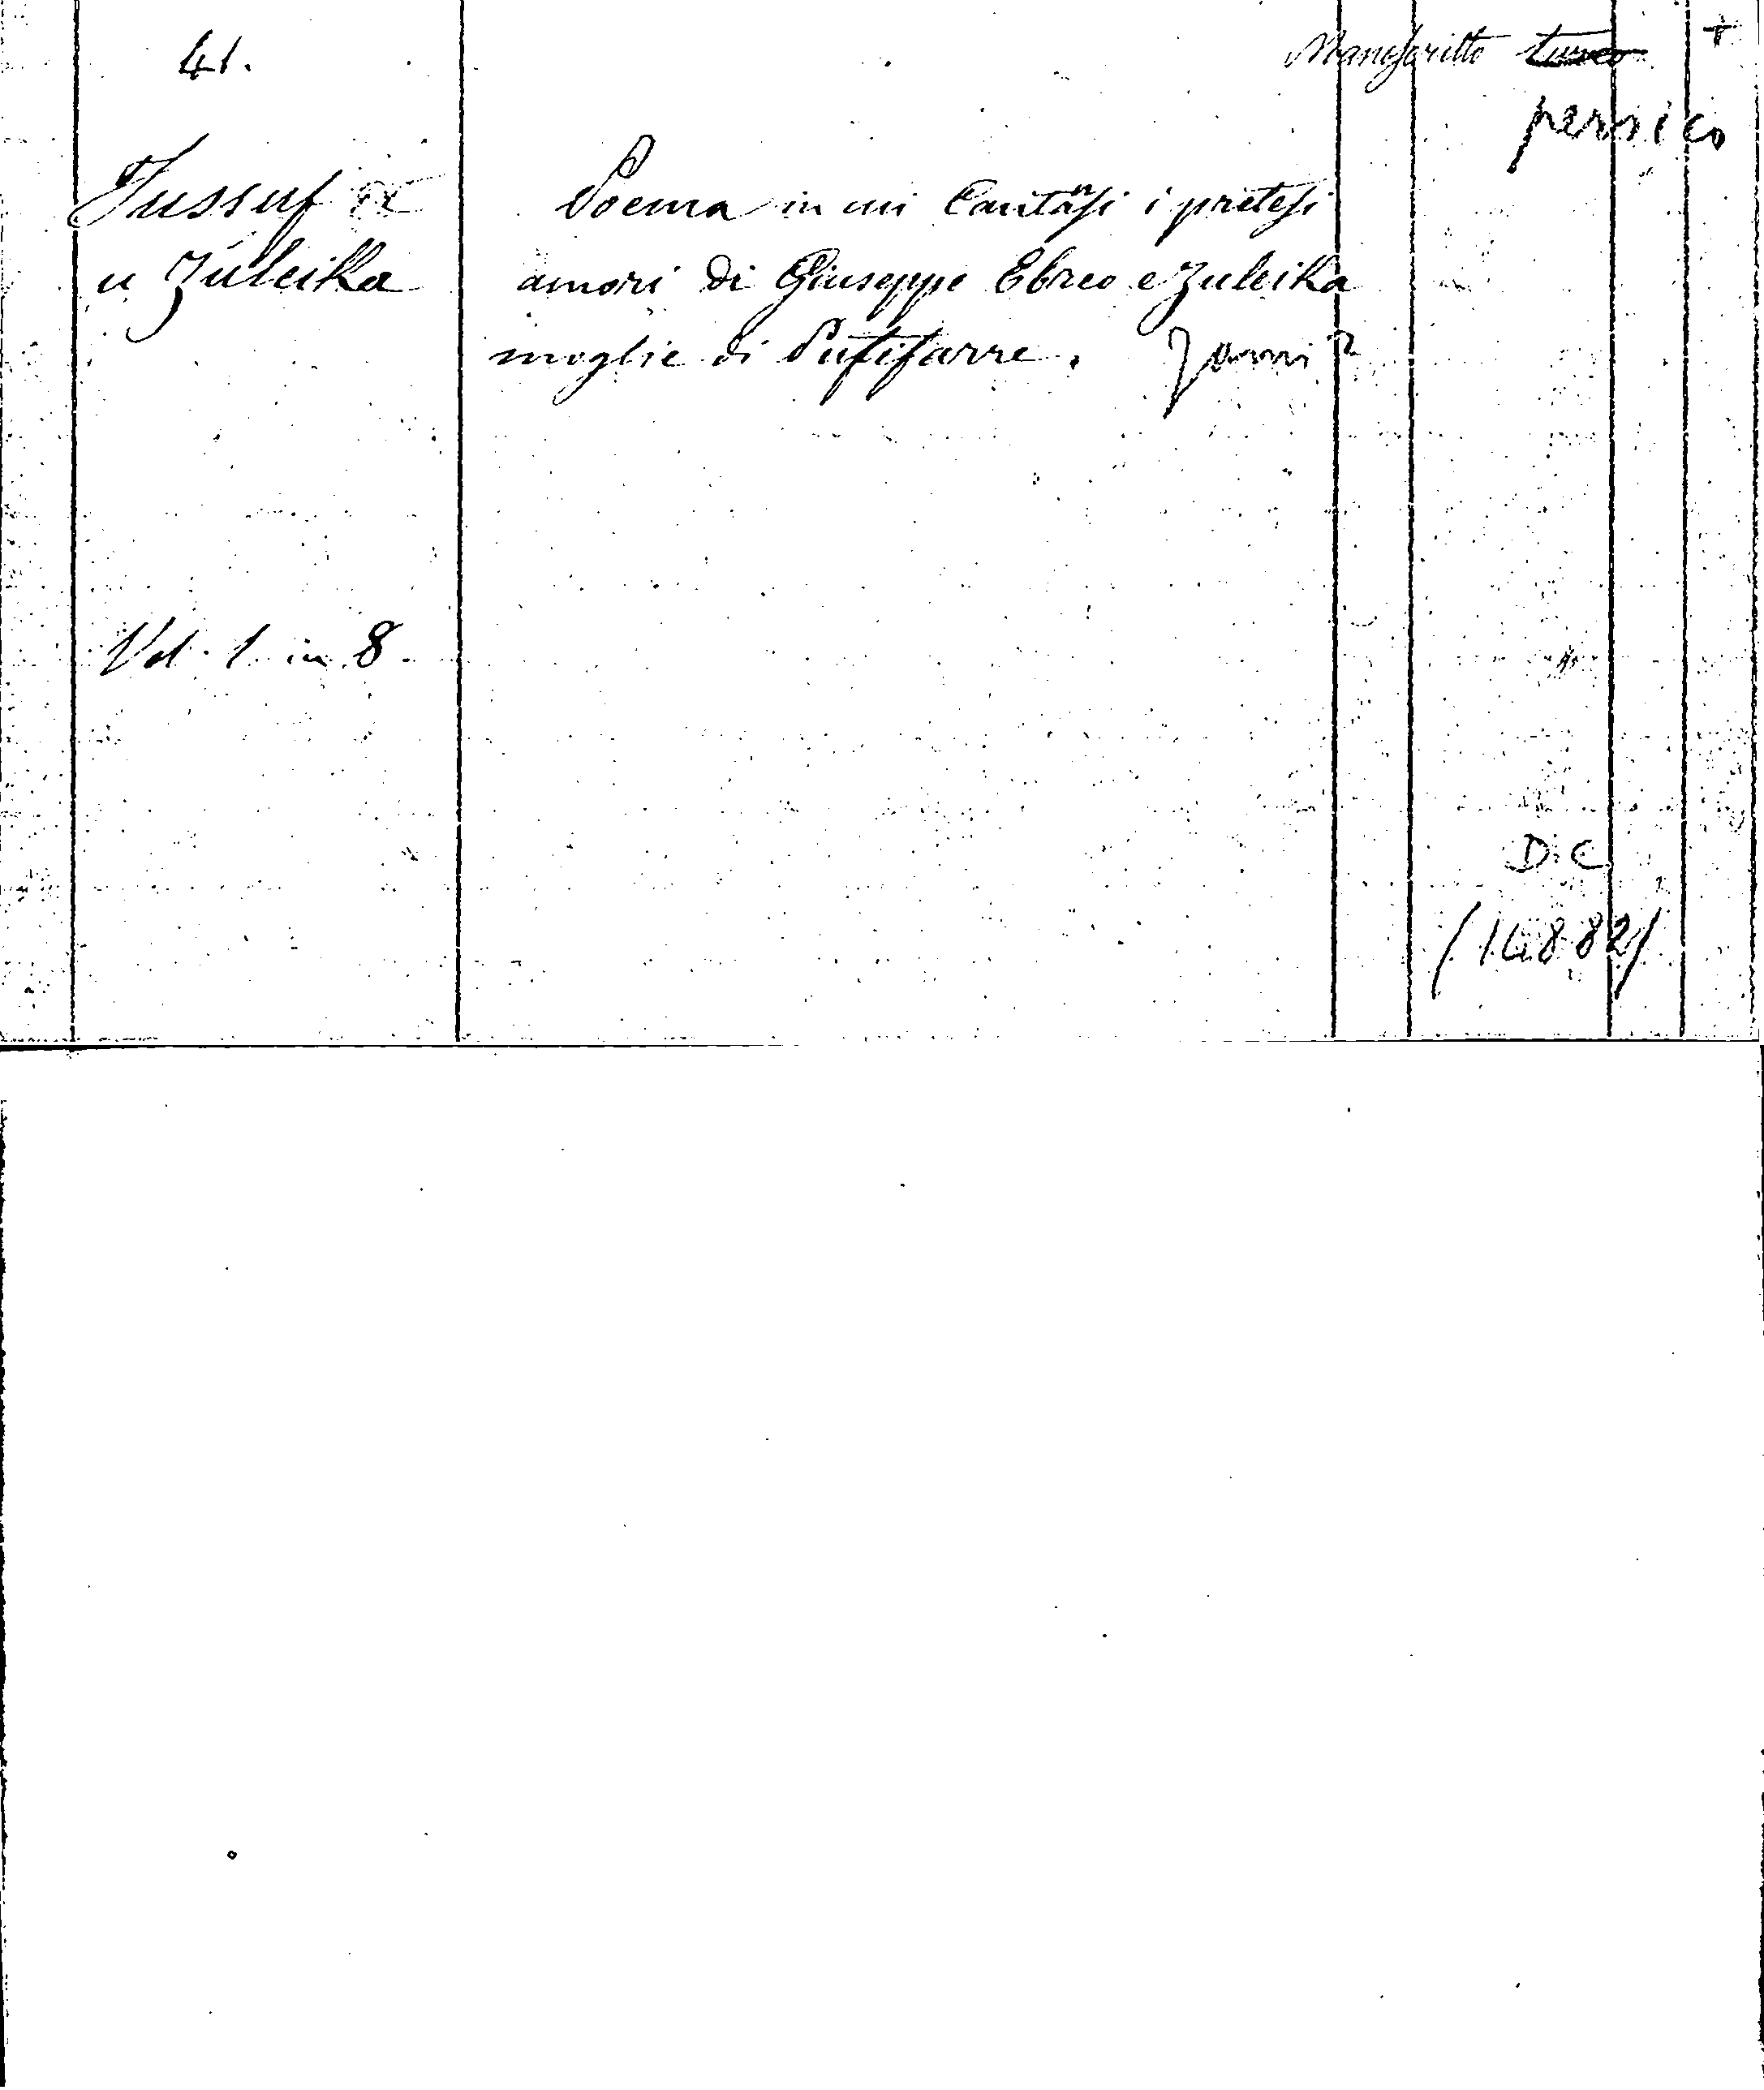 41.
Manoscritto turco +
persico
Jussuf
u Zuleika
Poema in cui Cantansi i pretesi
amori di Giuseppe Ebreo e Zuleika
moglie di Putifarre. Jami?
Vol. 1 in 8.
D.C
(14882)